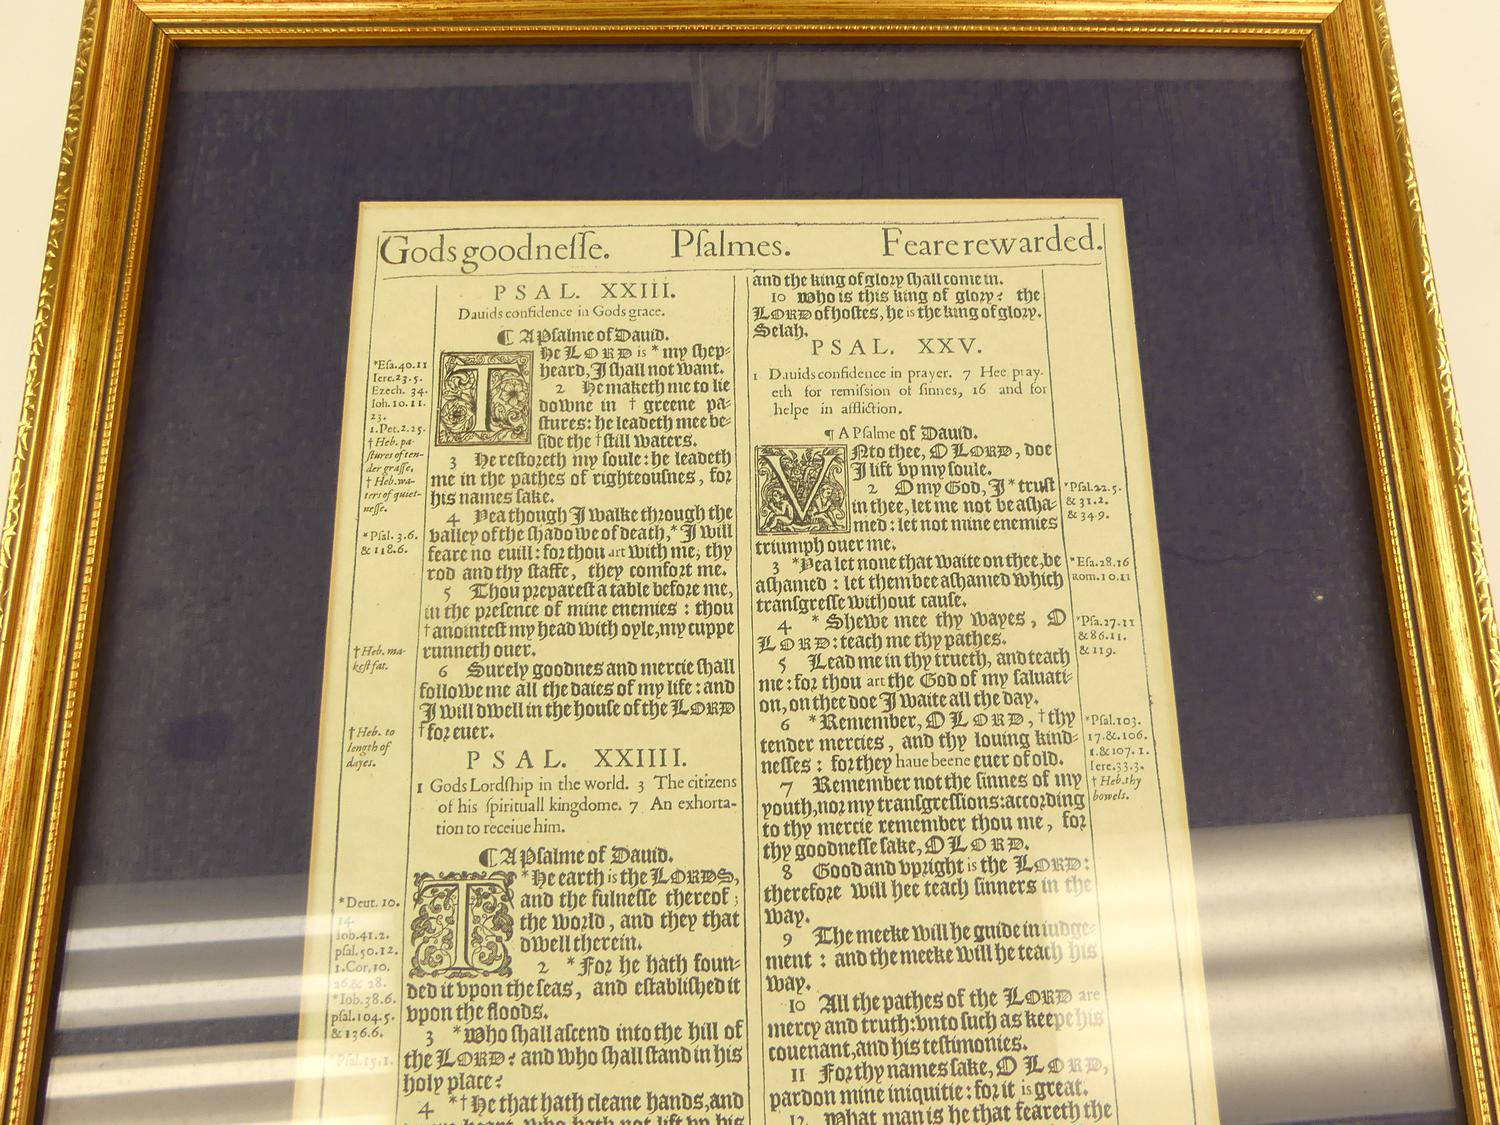 Gods goodneſſe. Pſalmes. Feare rewarded.
PSAL. XXIII.
Dauids confidence in Gods grace.
¶ A Pſalme of Dauid.
THe LORD is * my ſhep-
heard, I ſhall not want.
2 He maketh me to lie
downe in † greene pa-
ſtures: he leadeth mee be-
ſide the † ſtill waters.
3 He reſtoreth my ſoule: he leadeth
me in the pathes of righteouſnes, for
his names ſake.
4 Yea though I walke through the
valley of the ſhadowe of death, * I will
feare no euill: for thou art with me, thy
rod and thy ſtaffe, they comfort me.
5 Thou prepareſt a table before me,
in the preſence of mine enemies : thou
† anointeſt my head with oyle, my cuppe
runneth ouer.
6 Surely goodnes and mercie ſhall
followe me all the daies of my life : and
I will dwell in the houſe of the LORD
† for euer.
*Eſa.40.11
Iere.23.5.
Ezech. 34.
Ioh.10.11.
23.
1.Pet.2.25.
† Heb. pa-
ſtures of ten-
der graſſe.
† Heb. wa-
ters of quiet-
neſſe.
*Pſal. 3.6.
& 118.6.
† Heb. ma-
keſt fat.
† Heb. to
length of
dayes.
PSAL. XXIIII.
1 Gods Lordſhip in the world. 3 The citizens
of his ſpirituall kingdome. 7 An exhorta-
tion to receiue him.
¶ A Pſalme of Dauid.
T*He earth is the LORDS,
and the fulneſſe thereof;
the world, and they that
dwell therein.
2 * For he hath foun-
ded it vpon the ſeas, and eſtabliſhed it
vpon the floods.
3 * Who ſhall aſcend into the hill of
the LORD? and who ſhall ſtand in his
holy place?
4 *† He that hath cleane hands, and
*Deut. 10.
14.
Iob.41.2.
pſal.50.12.
1.Cor.10.
26.& 28.
*Iob.38.6.
pſal.104.5.
& 136.6.
*Pſal.15.1.
and the king of glory ſhall come in.
10 Who is this king of glory? the
LORD of hoſtes, he is the king of glory.
Selah.
PSAL. XXV.
1 Dauids confidence in prayer. 7 Hee pray-
eth for remiſsion of ſinnes, 16 and for
helpe in affliction.
¶ A Pſalme of Dauid.
VNto thee, O LORD, doe
I lift vp my ſoule.
2 O my God, I * truſt
in thee, let me not be aſha-
med : let not mine enemies
triumph ouer me.
3 * Yea let none that waite on thee, be
aſhamed : let them bee aſhamed which
tranſgreſſe without cauſe.
4 * Shewe mee thy wayes, O
LORD: teach me thy pathes.
5 Lead me in thy trueth, and teach
me: for thou art the God of my ſaluati-
on, on thee doe I waite all the day.
6 * Remember, O LORD, † thy
tender mercies, and thy louing kind-
neſſes : for they haue beene euer of old.
7 Remember not the ſinnes of my
youth, nor my tranſgreſſions: according
to thy mercie remember thou me, for
thy goodneſſe ſake, O LORD.
8 Good and vpright is the LORD:
therefore will hee teach ſinners in the
way.
9 The meeke will he guide in iudge-
ment : and the meeke will he teach his
way.
10 All the pathes of the LORD are
mercy and truth: vnto ſuch as keepe his
couenant, and his teſtimonies.
11 For thy names ſake, O LORD,
pardon mine iniquitie: for it is great.
12 What man is he that feareth the
*Pſal.22.5.
& 31.2.
& 34.9.
*Eſa.28.16
Rom.10.11
*Pſa.27.11
& 86.11.
& 119.
*Pſal.103.
17.&.106.
1.&107.1.
Iere.33.3.
† Heb. thy
bowels.